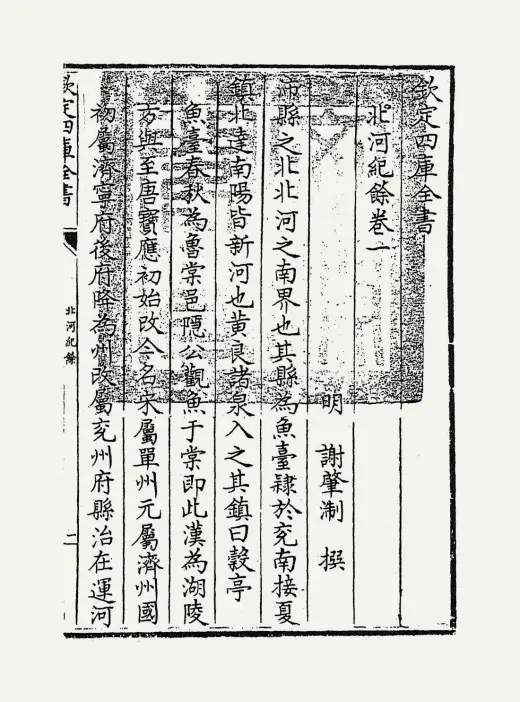 欽定四庫全書
北河紀餘卷一
明 謝肇淛 撰
沛縣之北北河之南界也其縣為魚臺隸於兖南接夏
鎮北達南陽皆新河也黄良諸泉入之其鎮曰榖亭
魚臺春秋為魯棠邑隠公觀魚于棠即此漢為湖陵
方與至唐寳應初始改今名宋屬單州元屬濟州國
初屬濟寧府後府降為州改屬兖州府縣治在運河
欽定四庫全書
北河紀餘
二